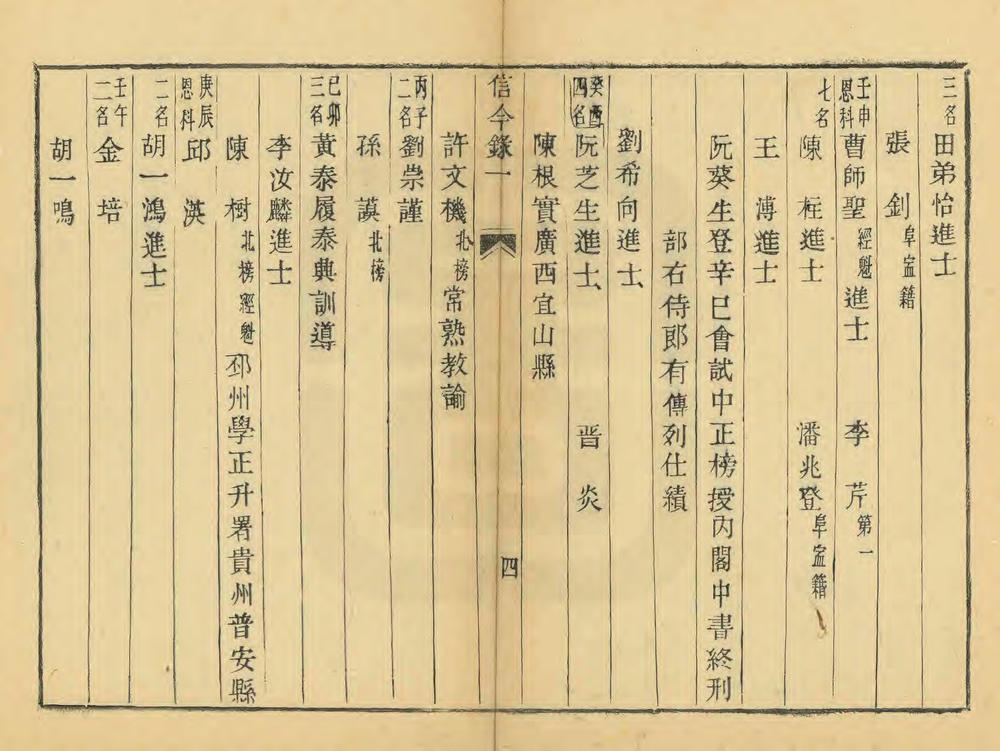 三名田弟怡進士
張　釗阜寍籍
壬申恩科七名曹師聖經魁進士　李　芹第一
陳　柱進士　潘兆登阜寍籍
王　溥進士
阮葵生登辛巳會試中正榜授內閣中書終刑
部右侍郎有傳列仕績
劉希向進士
癸酉四名阮芝生進士　晋　炎
陳根實廣西宜山縣
信今錄一　四
許文機北榜常熟教諭
丙子二名劉崇謹
孫　謨北榜
己卯三名黃泰履泰興訓導
李汝麟進士
陳　樹北榜經魁邳州學正升署貴州普安縣
庚辰恩科二名邱　渶
胡一鴻進士
壬午二名金　培
胡一鳴